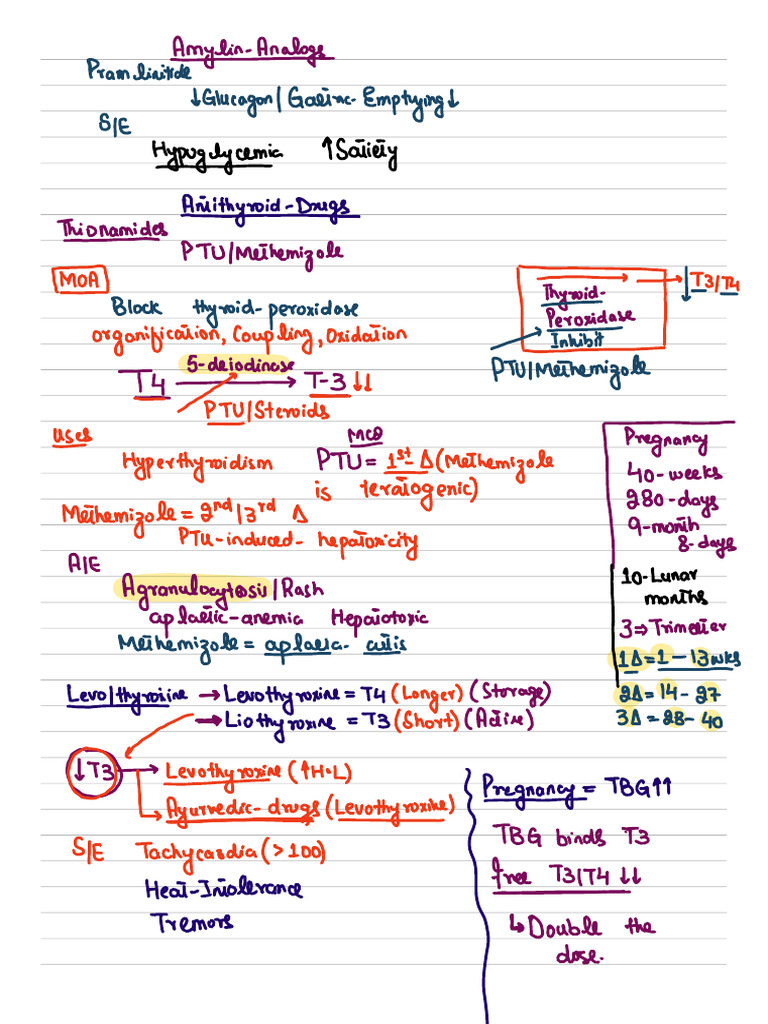 Amylin-Analogs
Pramlinitide
↓Glucagon/ Gastric-Emptying↓
S/E
Hypoglycemia ↑Satiety
Antithyroid-Drugs
Thionamides
PTU/Methemizole
MOA
Block thyroid-peroxidase
organification, Coupling, Oxidation
5-deiodinase
T4 → T-3 ↓↓
PTU/Steroids
Thyroid-
Peroxidase
Inhibit
→ ↓T3/T4
PTU/Methemizole
Uses
Hyperthyroidism
MCQ
PTU= 1st Δ (Methemizole
is teratogenic)
Methemizole = 2nd/3rd Δ
PTU-induced-hepatoxicity
A/E
Agranulocytosis/Rash
aplastic-anemia Hepatotoxic
Methemizole = aplasia-cutis
Pregnancy
40-weeks
280-days
9-month
8-days
10-Lunar
months
3⇒Trimester
1Δ=1-13wks
2Δ=14-27
3Δ=28-40
Levo/thyroxine → Levothyroxine = T4 (Longer) (Storage)
→ Liothyroxine = T3 (Short) (Active)
↓T3 → Levothyroxine (↑H.L)
↳ Ayurvedic-drugs (Levothyroxine)
S/E Tachycardia (>100)
Heat-Intolerance
Tremors
Pregnancy = TBG↑↑
TBG binds T3
free T3/T4 ↓↓
↳ Double the
dose.